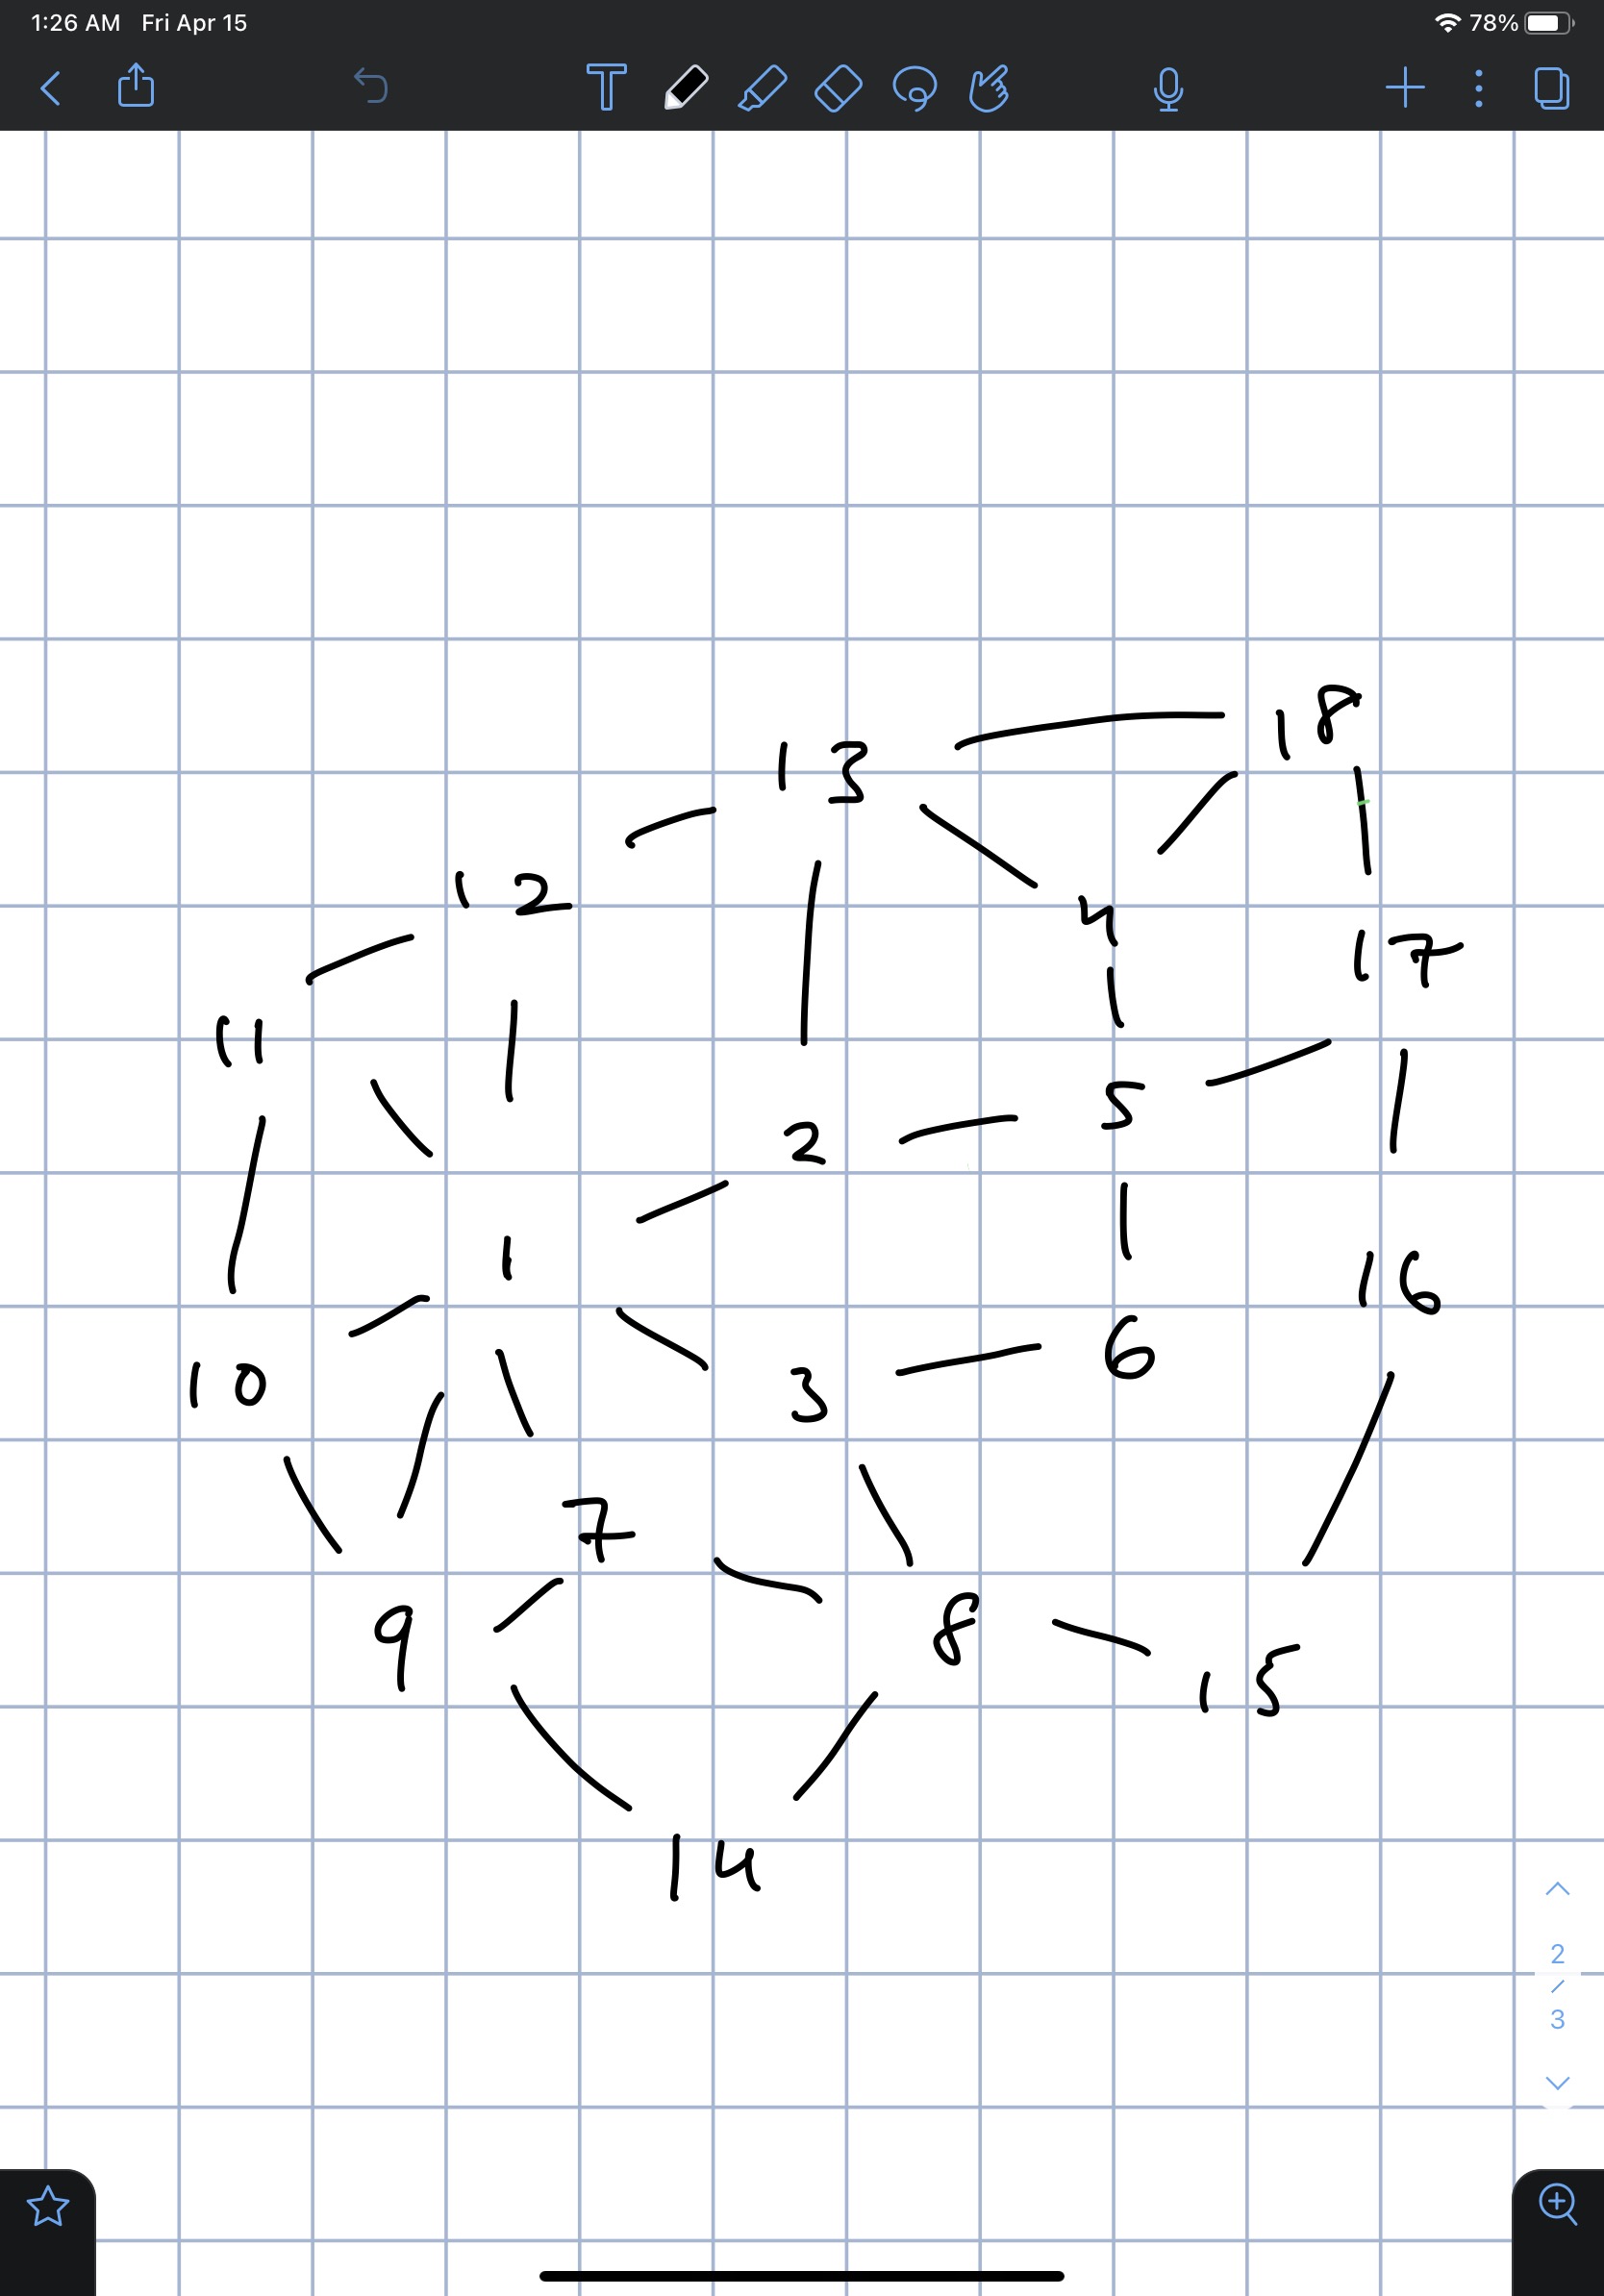 1:26 AM Fri Apr 15 78%
18
13
12
4
17
11
5
2
1
16
6
10
3
7
9
8
15
14
2
/
3